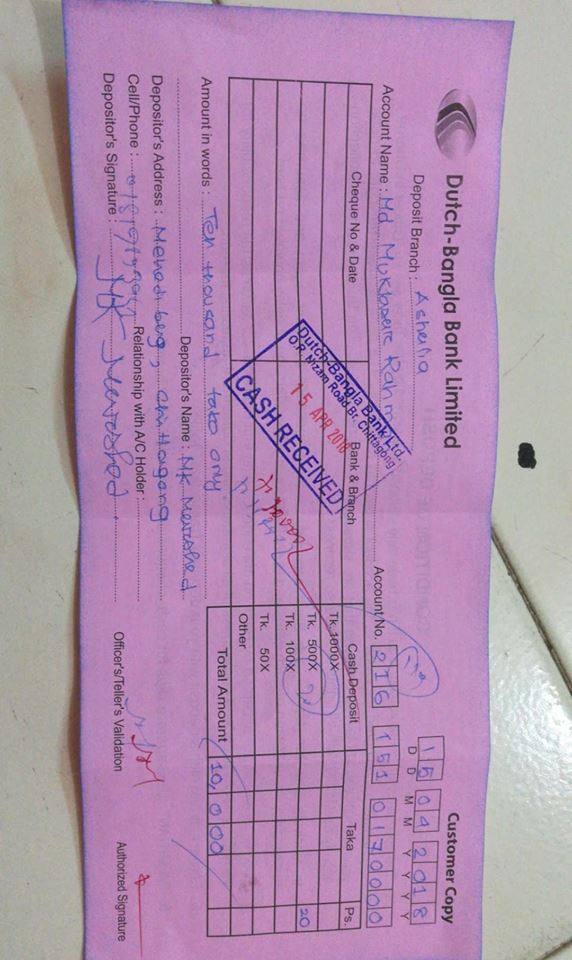 Dutch-Bangla Bank Limited
Customer Copy
Deposit Branch :
15 04 2018
D D M M Y Y Y Y
Account Name : Md
Account No. 216 151 0170000
Cheque No & Date
Bank & Branch
Cash Deposit
Taka
Ps.
Tk. 1000X
Tk. 500X
20
Tk. 100X
Tk. 50X
Other
Total Amount
10,000
Dutch-Bangla Bank Ltd.
O.R. Nizam Road Br. Chittagong
15 APR 2018
CASH RECEIVED
Amount in words : Ten thousand taka only
Depositor's Name : MK
Depositor's Address : Chittagong
Cell/Phone :
Relationship with A/C Holder :
Depositor's Signature : MK
Officer's/Teller's Validation
Authorized Signature